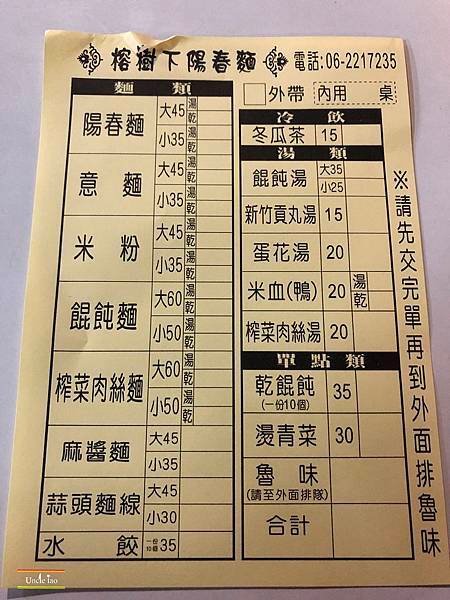 榕樹下陽春麵 電話:06-2217235
外帶 內用 桌
麵類
陽春麵 大45 湯 乾
小35 湯 乾
意麵 大45 湯 乾
小35 湯 乾
米粉 大45 湯 乾
小35 湯 乾
餛飩麵 大60 湯 乾
小50 湯 乾
榨菜肉絲麵 大60 湯 乾
小50 湯 乾
麻醬麵 大45
小35
蒜頭麵線 大45
小30
水餃 一份10個 35
冷飲
冬瓜茶 15
湯類
餛飩湯 大35
小25
新竹貢丸湯 15
蛋花湯 20
米血(鴨) 20 湯 乾
榨菜肉絲湯 20
單點類
乾餛飩 35
(一份10個)
燙青菜 30
魯味
(請至外面排隊)
合計
※請先交完單再到外面排魯味
Uncle Tao